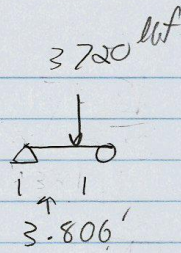 3720 lbf
3.806'